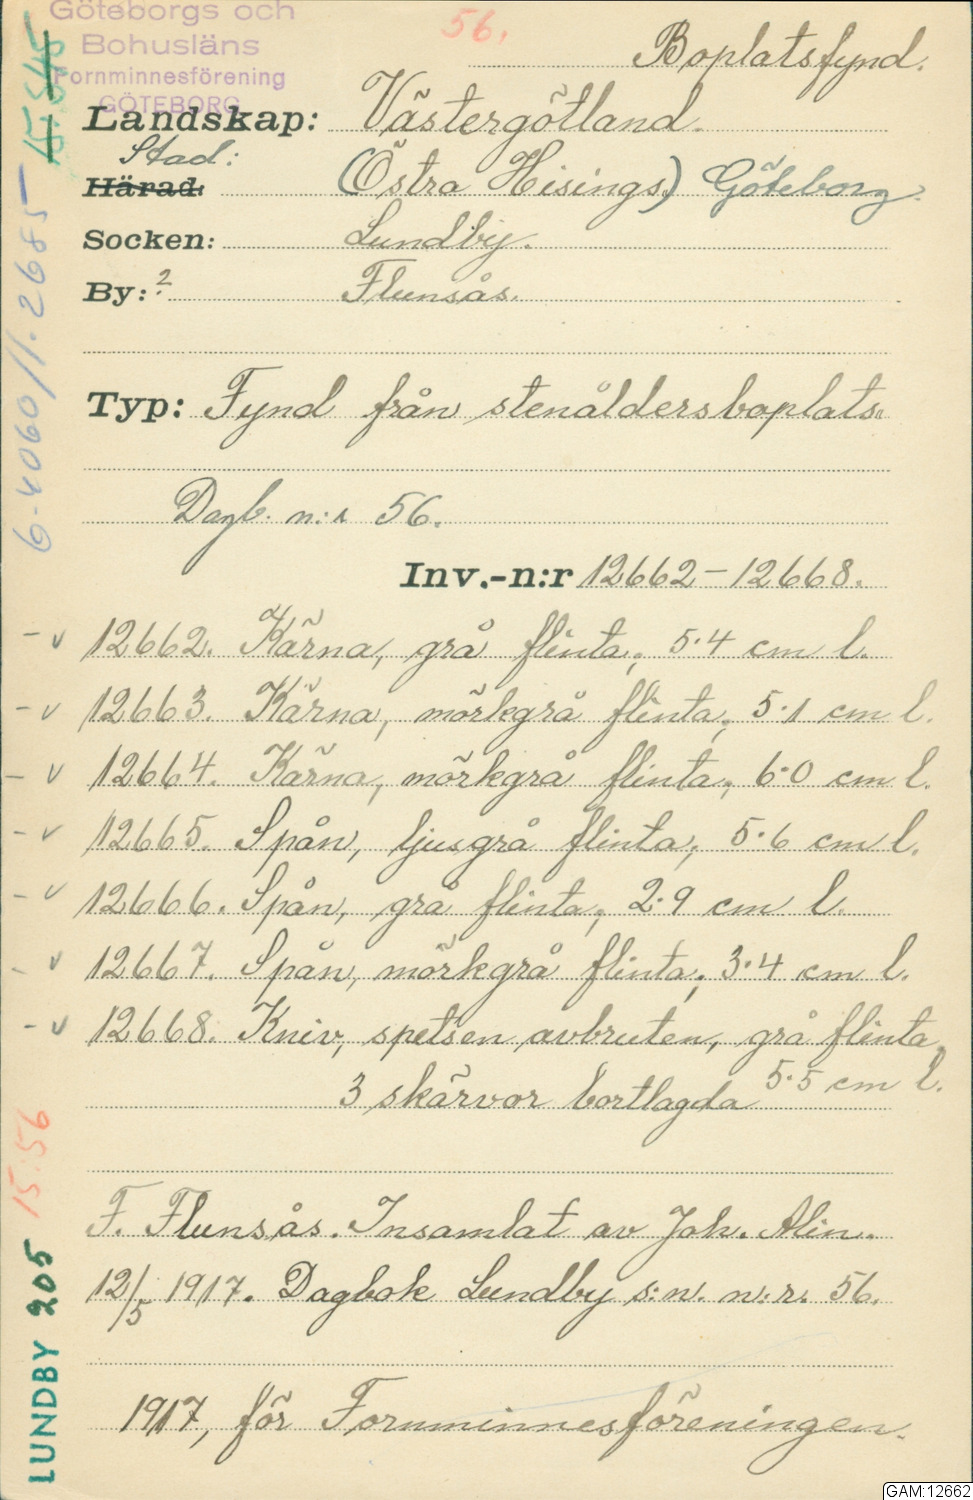 Göteborgs och
Bohusläns
Fornminnesförening
GÖTEBORG
56.
Boplatsfynd.
Landskap: Västergötland.
Stad:
Härad: (Östra Hisings) Göteborg.
Socken: Lundby.
By: ? Flunsås.
Typ: Fynd från stenåldersboplats.
Dagb. n:r 56.
Inv.-n:r 12662-12668.
- v 12662. Kärna, grå flinta; 5.4 cm l.
- v 12663. Kärna, mörkgrå flinta; 5.1 cm l.
- v 12664. Kärna, mörkgrå flinta; 6.0 cm l.
- v 12665. Spån, ljusgrå flinta; 5.6 cm l.
- v 12666. Spån, grå flinta; 2.9 cm l.
- v 12667. Spån, mörkgrå flinta; 3.4 cm l.
- v 12668. Kniv, spetsen avbruten, grå flinta,
5.5 cm l.
3 skärvor bortlagda
F. Flunsås. Insamlat av Joh. Alin.
12/5 1917. Dagbok Lundby s:n. n:r. 56.
1917, för Fornminnesföreningen.
LUNDBY 205 15:56
GAM:12662